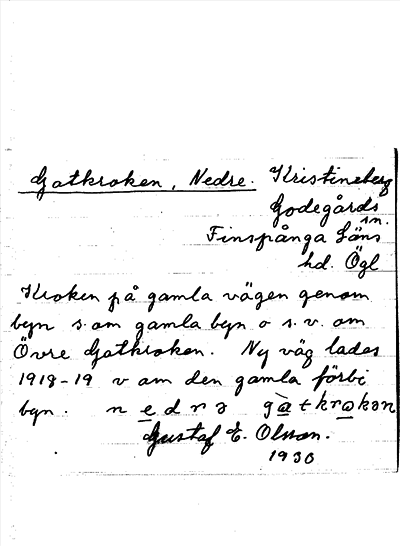 Gatkroken, Nedre. Kristineberg
Godegårds
sn.
Finspånga Läns
hd. Ögl
Kroken på gamla vägen genom
byn s. om gamla byn o s. v. om
Övre Gatkroken. Ny väg lades
1918-19 v om den gamla förbi
byn. n e d r ə g à t k r o k ə n
Gustaf E. Olsson.
1930